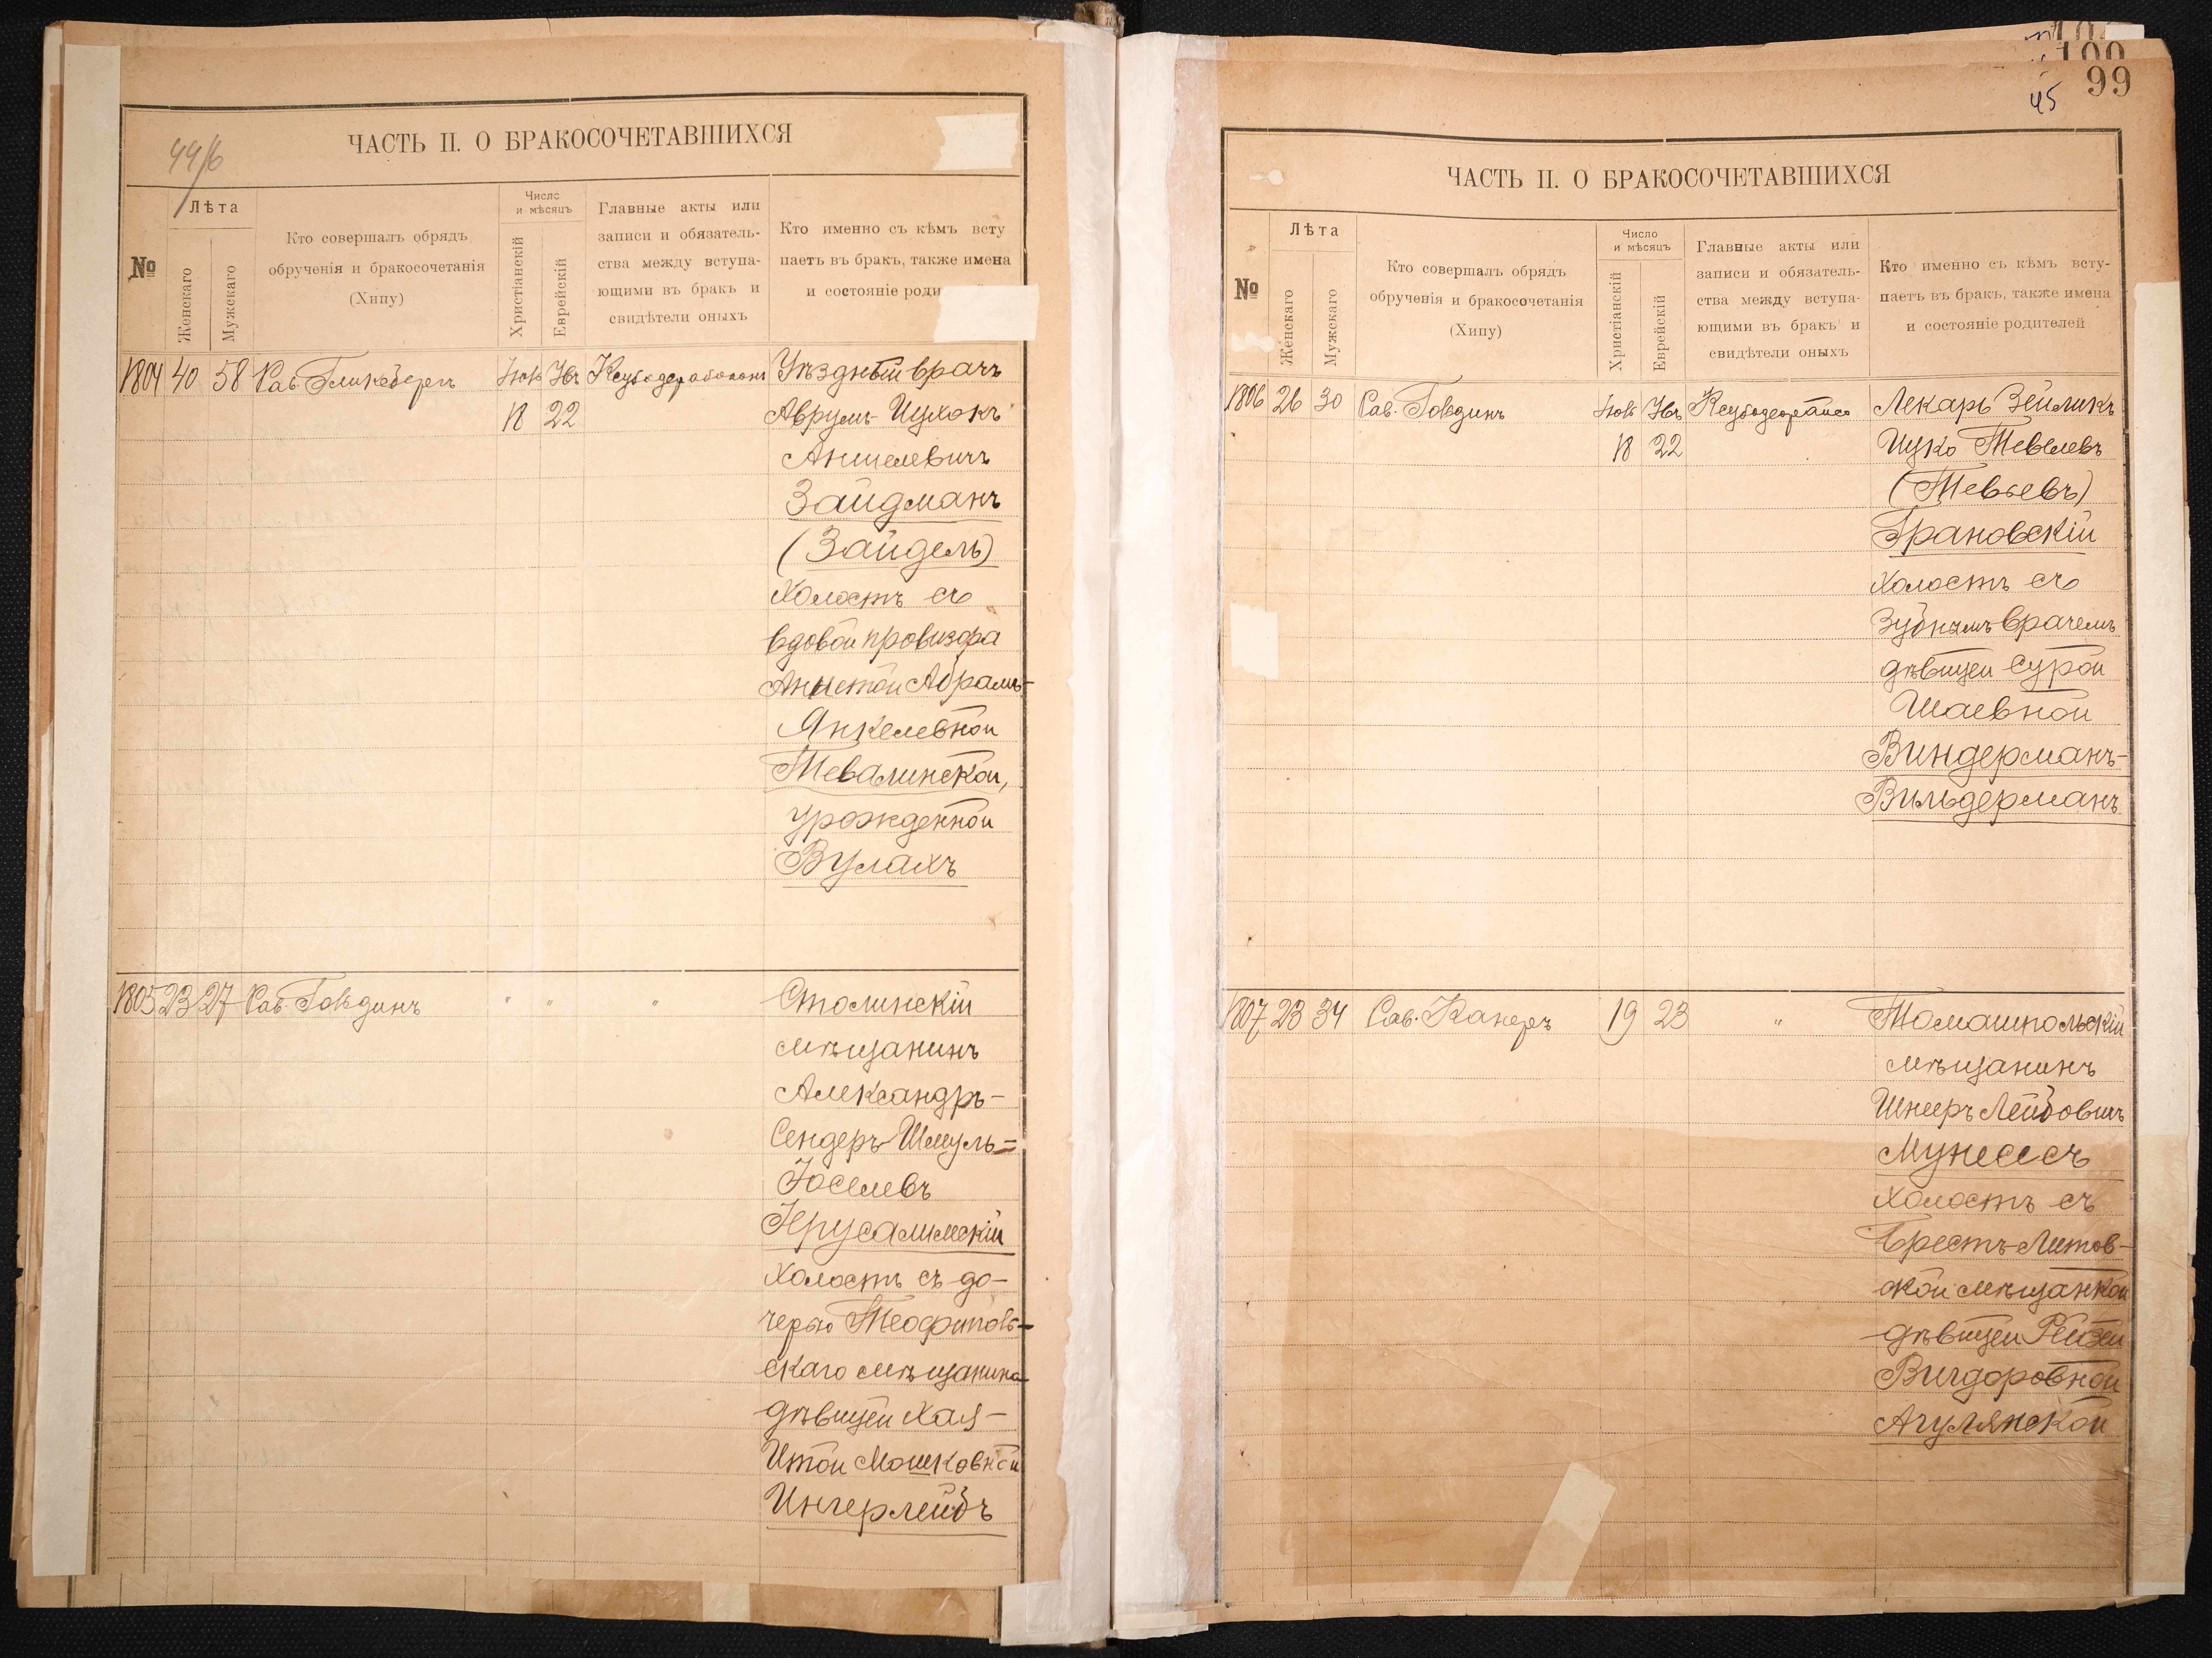 44/6
ЧАСТЬ II. О БРАКОСОЧЕТАВШИХСЯ
№
Лѣта
Женскаго
Мужскаго
Кто совершалъ обрядъ
обрученія и бракосочетанія
(Хипу)
Число
и мѣсяцъ
Христіанскій
Еврейскій
Главные акты или
записи и обязатель-
ства между вступа-
ющими въ бракъ и
свидѣтели оныхъ
Кто именно съ кѣмъ всту
паетъ въ бракъ, также имена
и состояніе роди
1804 40 58 Рав. Гликсбергъ
18 22
Уѣздный врачъ
Аврумъ-Ицхокъ
Аншелевичъ
Зайдманъ
(Зайдель)
холостъ съ
вдовой провизора
Анной Абрамъ-
Янкелевной
Тевалинской,
урожденной
Вулахъ
1805 23 27 Рав. Говдинъ " " "
Столинскій
мѣщанинъ
Александръ-
Сендеръ Шмуль=
Іоселевъ
Іерусалимскій
холостъ съ до-
черью Теофипов-
скаго мѣщанина
дѣвицей Хая-
Итой Мошковной
Ингерлейбъ
100
99
45
ЧАСТЬ II. О БРАКОСОЧЕТАВШИХСЯ
№
Лѣта
Женскаго
Мужскаго
Кто совершалъ обрядъ
обрученія и бракосочетанія
(Хипу)
Число
и мѣсяцъ
Христіанскій
Еврейскій
Главные акты или
записи и обязатель-
ства между вступа-
ющими въ бракъ и
свидѣтели оныхъ
Кто именно съ кѣмъ всту-
паетъ въ бракъ, также имена
и состояніе родителей
1806 26 30 Рав. Говдинъ
18 22
Лекарь Зейликъ
Ицко Тевелевъ
(Тевьевъ)
Грановскій
холостъ съ
Зубнымъ врачемъ
дѣвицей Сурой
Шаевной
Виндерманъ-
Вильдерманъ
1807 23 34 Рав. Канеръ 19 23 "
Томашпольскій
мѣщанинъ
Шнееръ Лейбовичъ
Мунессъ
холостъ съ
Брестъ-Литов-
ской мѣщанкой
дѣвицей Рейзей
Вигдоровной
Агулянской